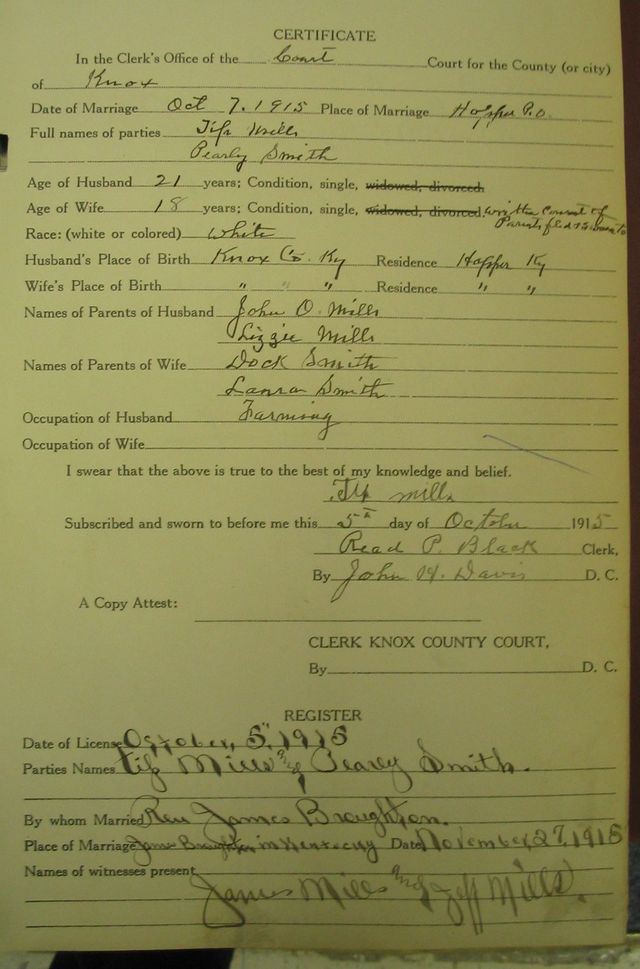 CERTIFICATE
In the Clerk's Office of the Court Court for the County (or city)
of Knox
Date of Marriage Oct 7. 1915 Place of Marriage Hopper P.O.
Full names of parties Tip Mills
Pearly Smith
Age of Husband 21 years; Condition, single, widowed, divorced.
Age of Wife 18 years; Condition, single, widowed, divorced. written Consent of
Parents
Race: (white or colored) white
Husband's Place of Birth Knox Co. Ky Residence Hopper Ky
Wife's Place of Birth " " " Residence " "
Names of Parents of Husband John O. Mills
Lizzie Mills
Names of Parents of Wife Dock Smith
Laura Smith
Occupation of Husband Farming
Occupation of Wife
I swear that the above is true to the best of my knowledge and belief.
Tip mills
Subscribed and sworn to before me this 5th day of October 1915
Read P. Black Clerk,
By John H. Davis D. C.
A Copy Attest:
CLERK KNOX COUNTY COURT,
By D. C.
REGISTER
Date of License October, 5, 1915
Parties Names Tip Mills and Pearly Smith.
By whom Married Rev James Broughton.
Place of Marriage James Broughton in Kentucky Date November 27, 1915
Names of witnesses present
James Mills and Jeff Mills.